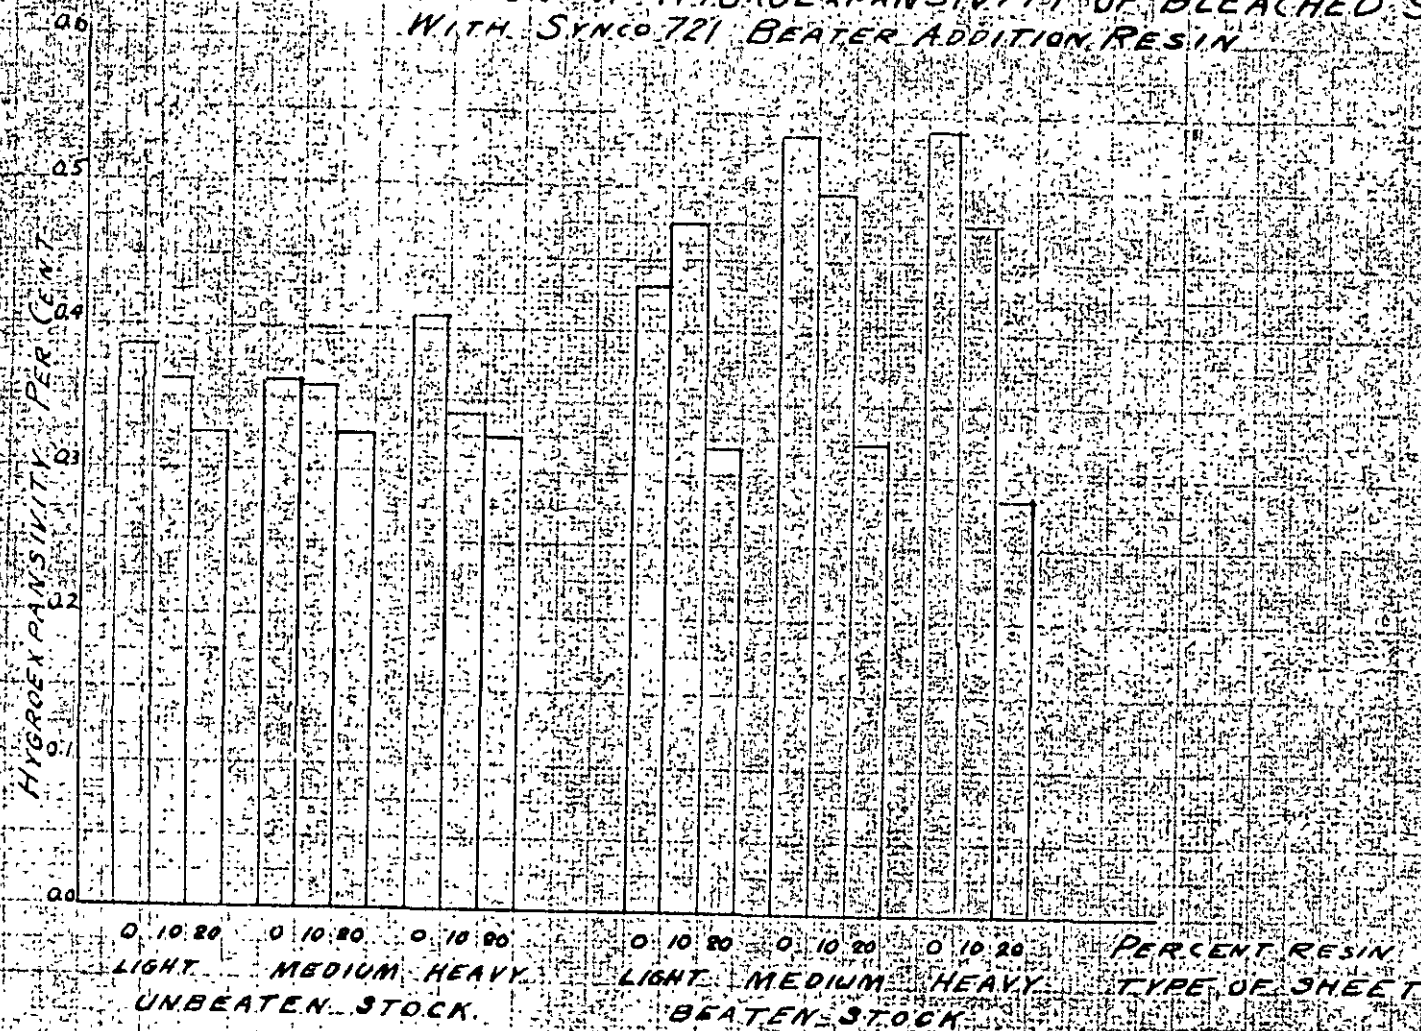 HYGROEXPANSIVITY OF BLEACHED
WITH SYNCO 721 BEATER ADDITION RESIN
0.6
0.5
0.4
0.3
0.2
0.1
0.0
HYGROEXPANSIVITY PER CENT
0 10 20 0 10 20 0 10 20 0 10 20 0 10 20 0 10 20 PERCENT RESIN
LIGHT MEDIUM HEAVY LIGHT MEDIUM HEAVY TYPE OF SHEET
UNBEATEN STOCK. BEATEN STOCK